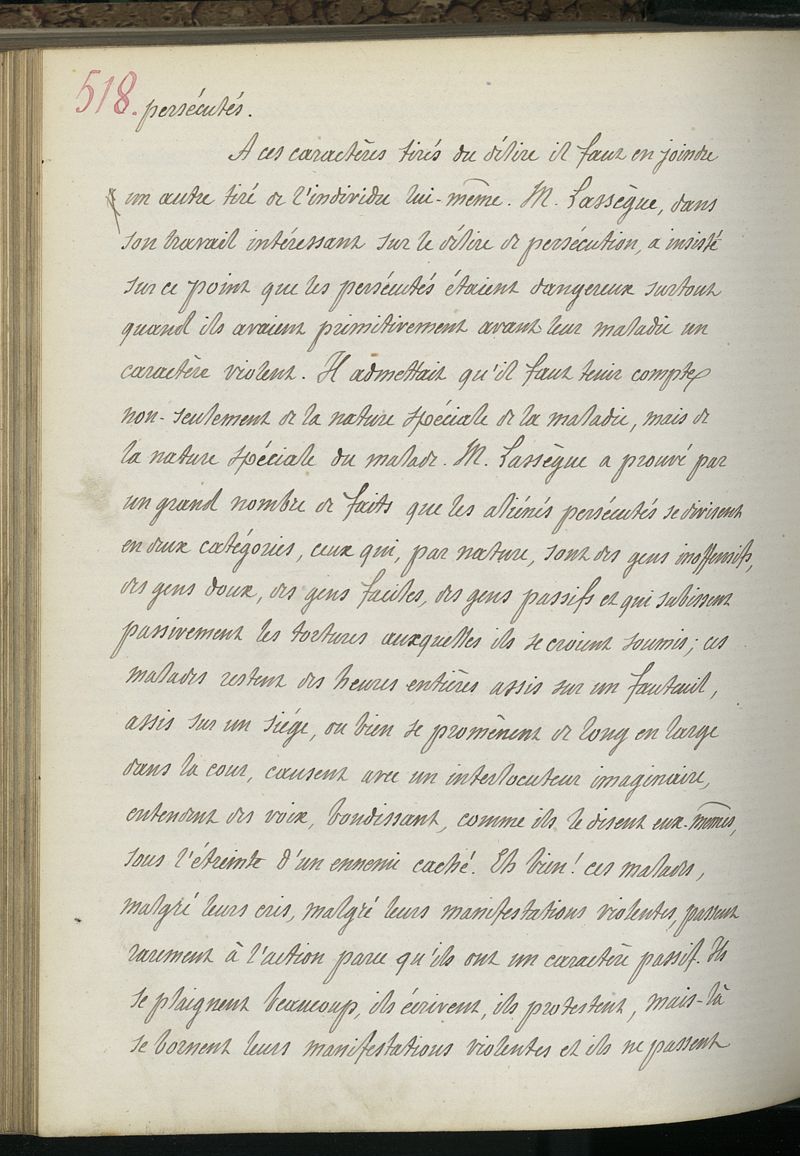 518. persécutés.
A ces caractères tirés du délire il faut en joindre
un autre tiré de l'individu lui-même. M. Lassègue, dans
son travail intéressant sur le délire de persécution, a insisté
sur ce point que les persécutés étaient dangereux surtout
quand ils avaient primitivement avant leur maladie un
caractère violent. Il admettait qu'il faut tenir compte
non-seulement de la nature spéciale de la maladie, mais de
la nature spéciale du malade. M. Lassègue a prouvé par
un grand nombre de faits que les aliénés persécutés se divisent
en deux catégories, ceux qui, par nature, sont des gens inoffensifs,
des gens doux, des gens faciles, des gens passifs et qui subissent
passivement les tortures auxquelles ils se croient soumis; ces
malades restent des heures entières assis sur un fauteuil,
assis sur un siége, ou bien se promènent de long en large
dans la cour, causent avec un interlocuteur imaginaire,
entendent des voix, bondissant, comme ils le disent eux-mêmes,
sous l'étreinte d'un ennemi caché. Eh bien! ces malades,
malgré leurs cris, malgré leurs manifestations violentes, passent
rarement à l'action parce qu'ils ont un caractère passif. Ils
se plaignent beaucoup, ils écrivent, ils protestent, mais-là
se bornent leurs manifestations violentes et ils ne passent